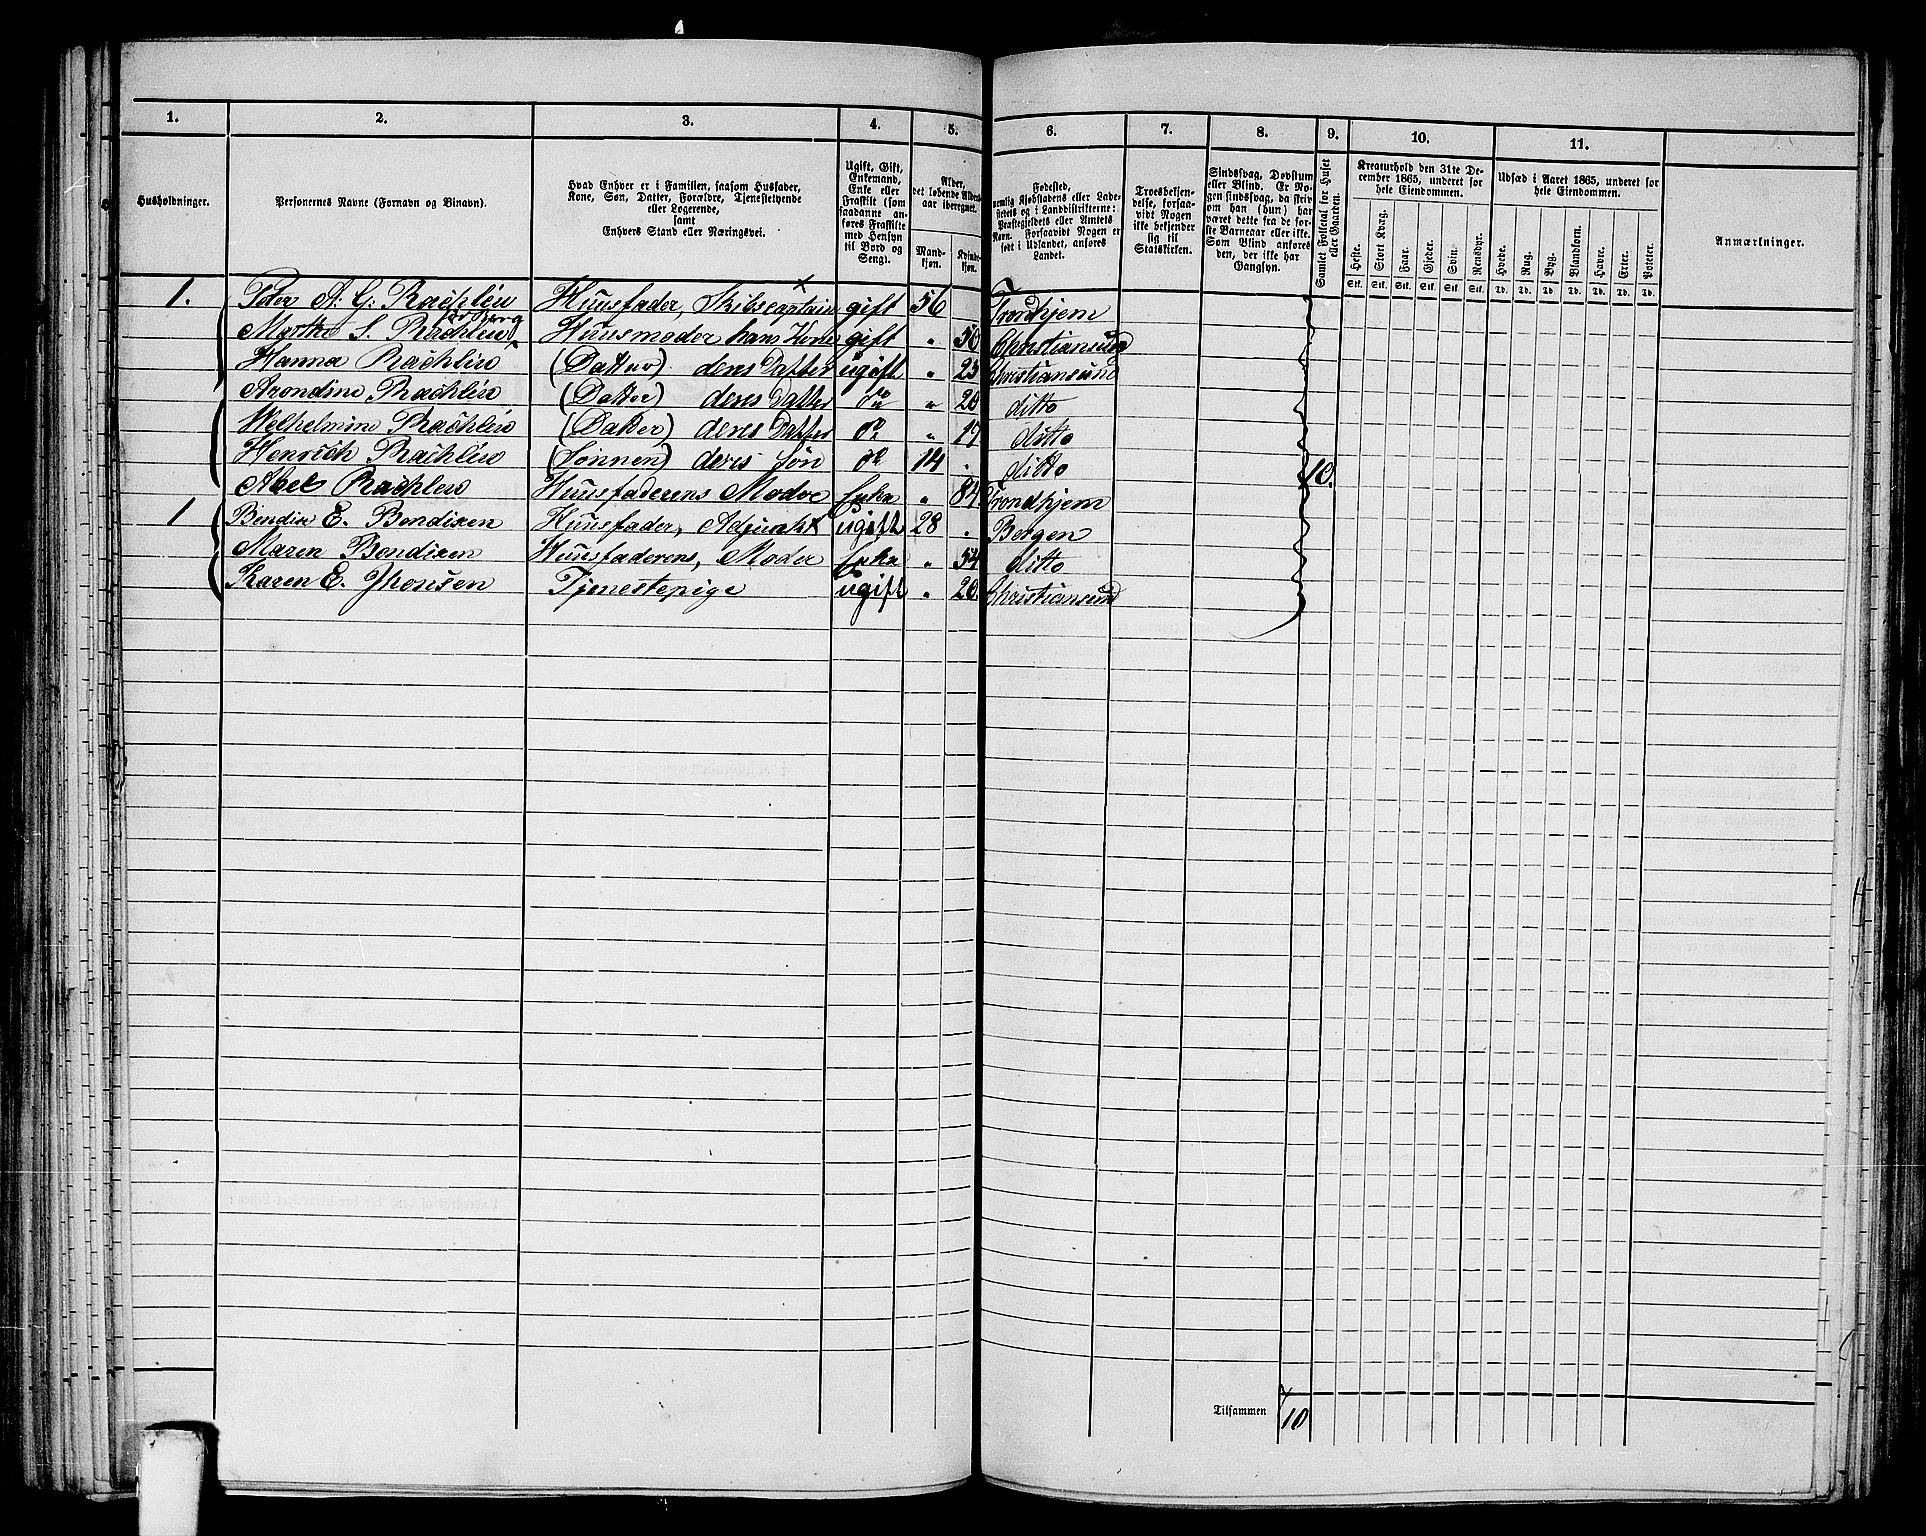 1. 2. 3. 4. 5. 6. 7. 8. 9. 10. 11.
Husholdninger.
Personernes Navne (Fornavn og Binavn).
Hvad Enhver er i Familien, saasom Husfader,
Kone, Søn, Datter, Forældre, Tjenestetyende
eller Logerende,
samt
Enhvers Stand eller Næringsvei.
Ugift, Gift,
Enkemand,
Enke eller
Fraskilt (som
saadanne an-
føres Fraskilte
med Hensyn
til Bord og
Seng).
Alder,
det løbende Alders-
aar iberegnet.
Mand-
kjøn.
Kvinde-
kjøn.
Fødested,
nemlig Kjøbstadens eller Lade-
stedets og i Landdistrikterne:
Præstegjeldets eller Amtets
Navn. Forsaavidt Nogen er
født i Udlandet, anføres
Landet.
Troesbekjen-
delse, forsaa-
vidt Nogen
ikke bekjender
sig til
Statskirken.
Sindssvag, Døvstum
eller Blind. Er No-
gen sindssvag, da skriv
om han (hun) har
været dette fra de før-
ste Barneaar eller ikke.
Som Blind anføres
den, der ikke har
Gangsyn.
Samlet Folketal for Huset
eller Gaarden.
Kreaturhold den 31te De-
cember 1865, underet for
hele Eiendommen.
Heste. Stort Kvæg. Faar. Gjeder. Svin. Rensdyr.
Stk. Stk. Stk. Stk. Stk. Stk.
Udsæd i Aaret 1865, underet for
hele Eiendommen.
Hvede. Rug. Byg. Blandkorn. Havre. Erter. Poteter.
Td. Td. Td. Td. Td. Td. Td.
Anmærkninger.
1. Peter A: G: Rachlew Huusfader, Skibscaptain gift 56 Trondhjem
Marthe S. Rachlew Huusmoder hans Kone gift " 50 Christiansund
Hanna Rachlew (Datter) deres Datter ugift " 23 Christiansund
Arondine Rachlew (Datter) deres Datter do " 20 ditto
Welhelmine Rachlew (Datter) deres Datter do " 17 ditto
Henrich Rachlew (Sønnen) deres Søn do 14 . ditto 10.
Abel Rachlew Huusfaderens Moder Enke " 84 Trondhjem
1 Bendix E. Bendixen Huusfader, Adjunkt ugift 28 . Bergen
Maren Bendixen Huusfaderens, Moder Enke " 54 ditto
Karen E. Jhonsen Tjenestepige ugift " 20. Christiansund
Tilsammen 10